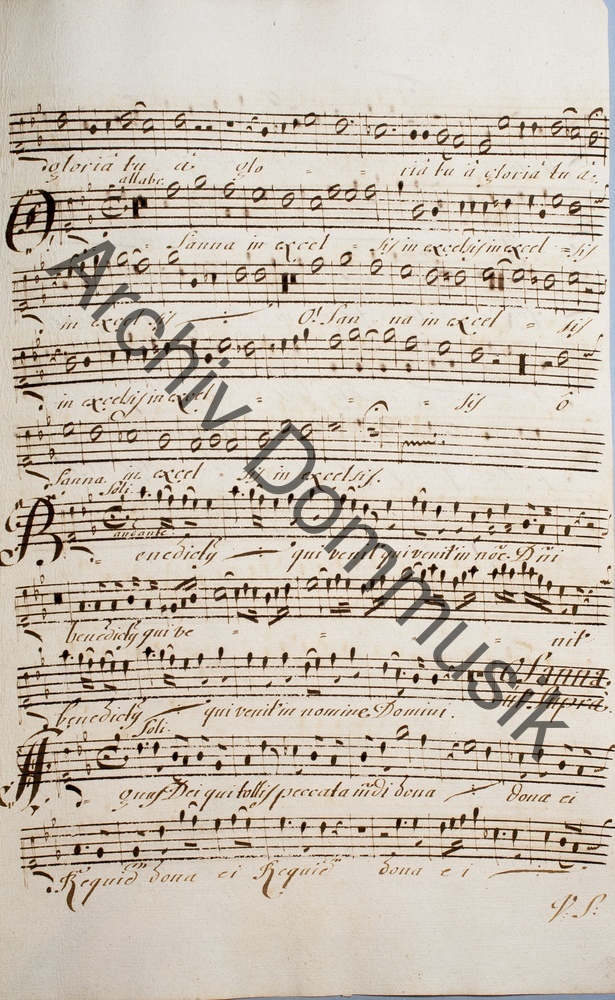 gloria tu a glo - ria tu a gloria tu a.
allabr.
O! - - Sanna in excel - sis in excelsis in excel - sis
in excelsis -:- O! San - na in excel - sis
in excelsis in excel - - - sis O
Sanna in excel - sis in excelsis.
Soli.
andante.
Benedictq -:- qui venit qui venit in noē Dñi
benedictq qui ve - - - nit
benedictq -:- qui venit in nomine Domini.
O! Sanna
ut Supra
Soli.
Agnus Dei qui tollis peccata mũdi dona -:- dona ei
Requiē dona ei Requiē dona ei -:-
V: S:
Archiv Dommusik